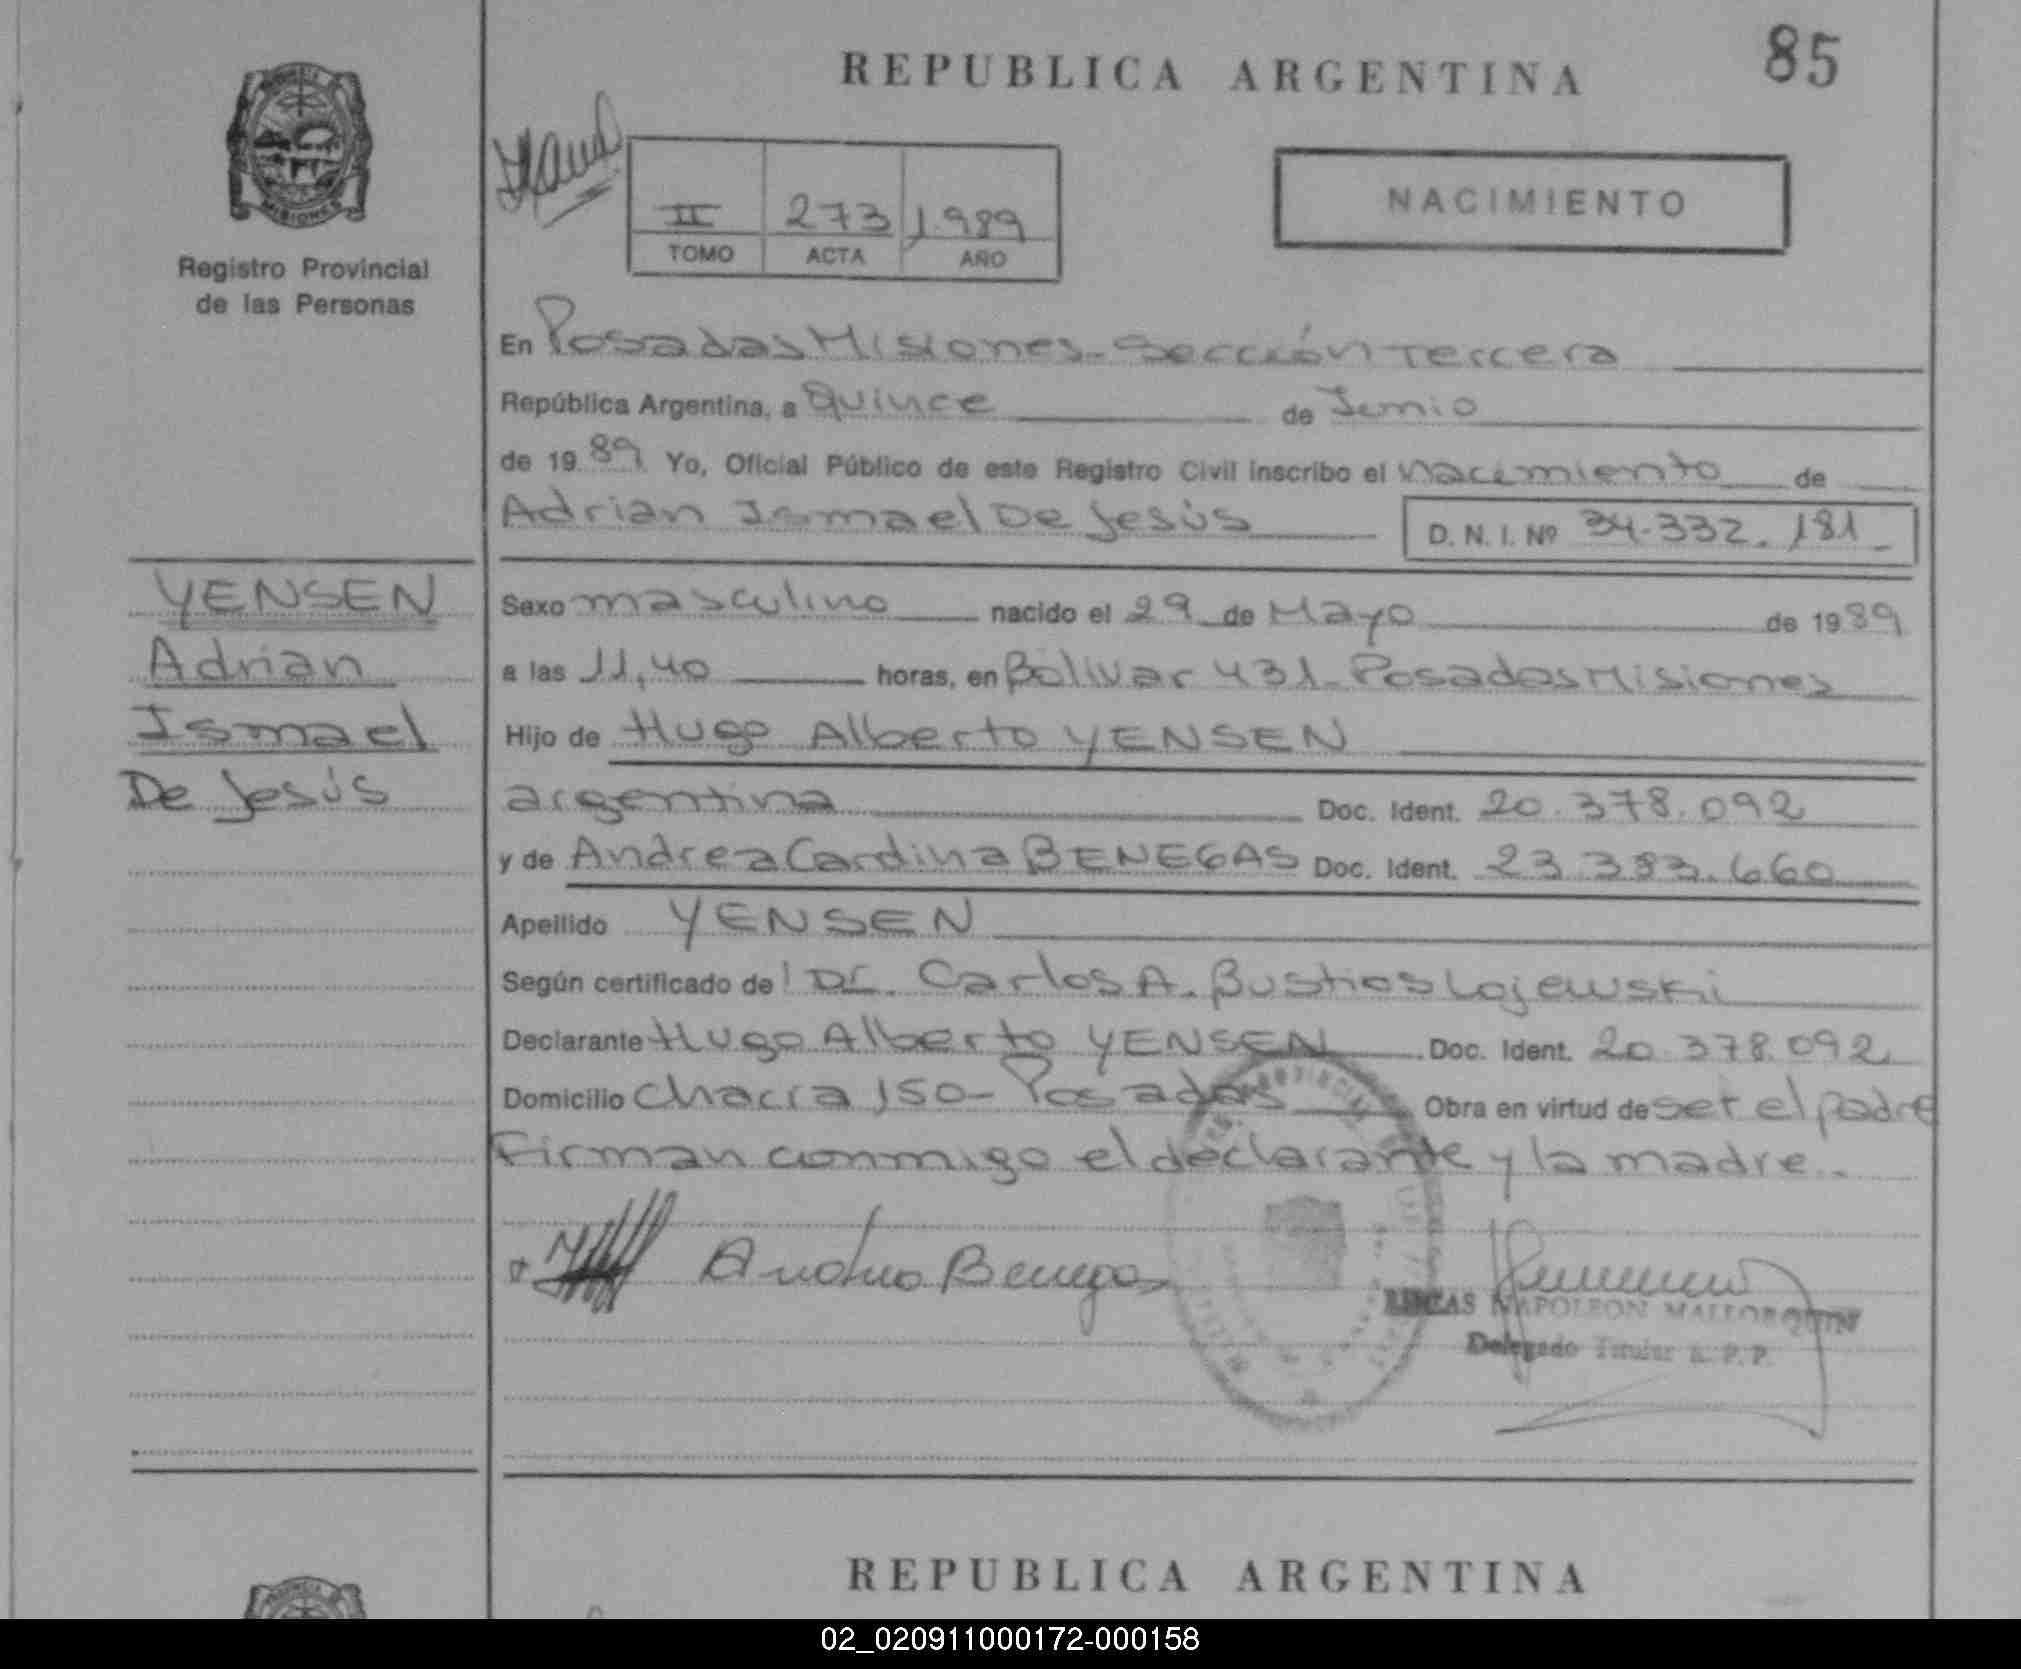 REPUBLICA ARGENTINA
85
MISIONES
Registro Provincial
de las Personas
II 273 1.989
TOMO ACTA AÑO
NACIMIENTO
En Posadas Misiones - Sección Tercera
República Argentina, a Quince de Junio
de 1989 Yo, Oficial Público de este Registro Civil inscribo el nacimiento de
Adrian Ismael De Jesús D. N. I. Nº 34.332.181
YENSEN
Adrian
Ismael
De Jesús
Sexo masculino nacido el 29 de Mayo de 1989
a las 11,40 horas, en Bolivar 431 - Posadas Misiones
Hijo de Hugo Alberto YENSEN
argentina Doc. Ident. 20.378.092
y de Andrea Carolina BENEGAS Doc. Ident. 23.383.660
Apellido YENSEN
Según certificado de Dr. Carlos A. Bustios Lojewski
Declarante Hugo Alberto YENSEN Doc. Ident. 20.378.092
Domicilio Chacra 150 - Posadas Obra en virtud de ser el padre
Firman conmigo el declarante y la madre.
Andrea Benegas
NAPOLEON MALLORQUIN
Delegado Titular R. P. P.
REPUBLICA ARGENTINA
02_020911000172-000158